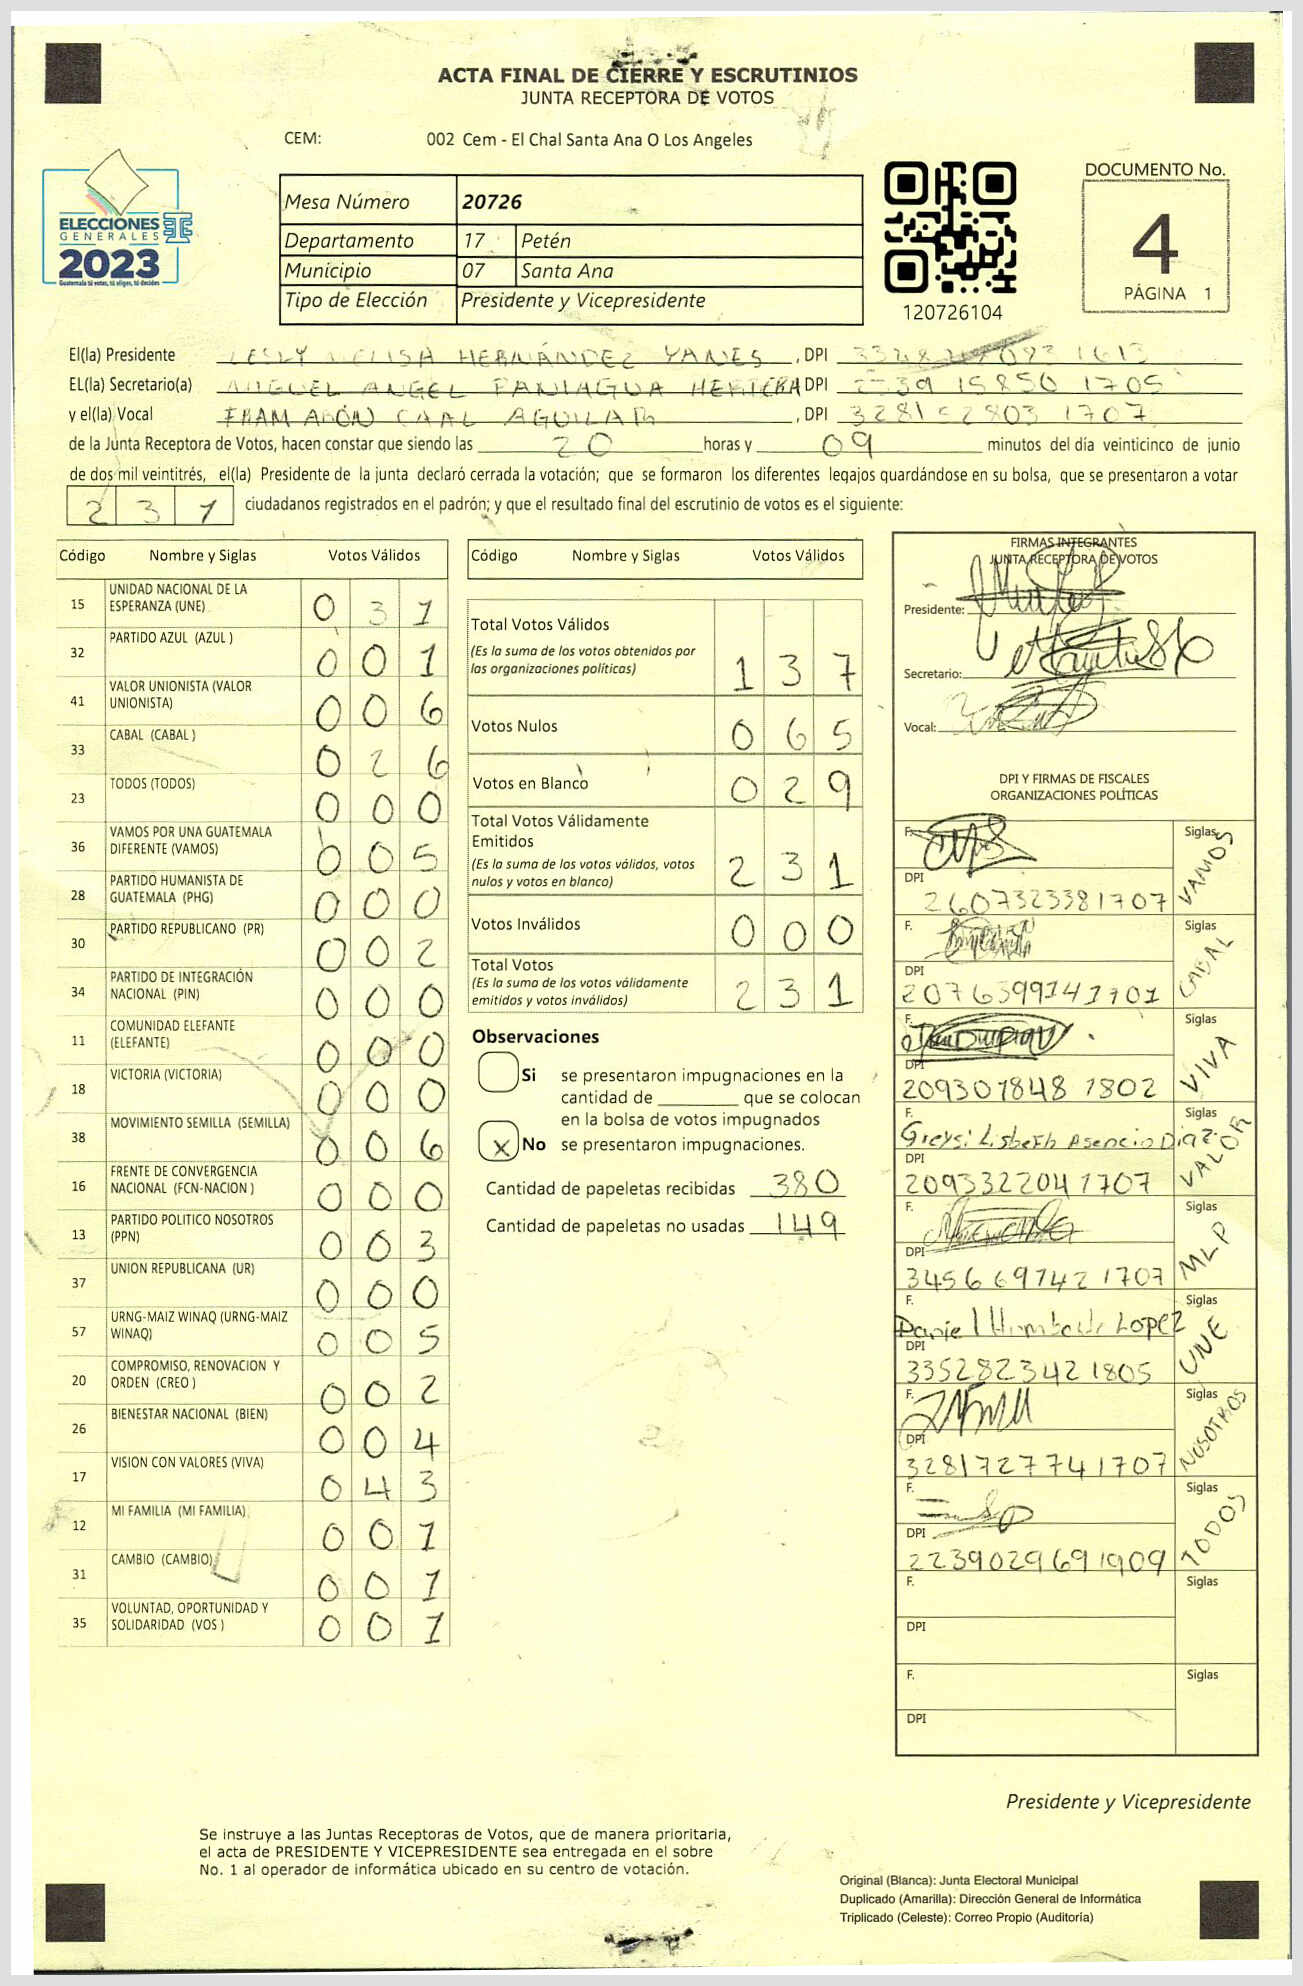 ACTA FINAL DE CIERRE Y ESCRUTINIOS
JUNTA RECEPTORA DE VOTOS
CEM: 002 Cem - El Chal Santa Ana O Los Angeles
ELECCIONES
GENERALES
2023
Guatemala tú votas, tú eliges, tú decides
Mesa Número 20726
Departamento 17 Petén
Municipio 07 Santa Ana
Tipo de Elección Presidente y Vicepresidente
120726104
DOCUMENTO No.
4
PÁGINA 1
El(la) Presidente HERNÁNDEZ YANES, DPI
EL(la) Secretario(a) MIGUEL ANGEL PANIAGUA HERRERA DPI
y el(la) Vocal CAAL AGUILAR, DPI
de la Junta Receptora de Votos, hacen constar que siendo las 20 horas y 09 minutos del día veinticinco de junio
de dos mil veintitrés, el(la) Presidente de la junta declaró cerrada la votación; que se formaron los diferentes legajos quardándose en su bolsa, que se presentaron a votar
231 ciudadanos registrados en el padrón; y que el resultado final del escrutinio de votos es el siguiente:
Código Nombre y Siglas Votos Válidos
15 UNIDAD NACIONAL DE LA ESPERANZA (UNE) 0 3 1
32 PARTIDO AZUL (AZUL ) 0 0 1
41 VALOR UNIONISTA (VALOR UNIONISTA) 0 0 6
33 CABAL (CABAL ) 0 2 6
23 TODOS (TODOS) 0 0 0
36 VAMOS POR UNA GUATEMALA DIFERENTE (VAMOS) 0 0 5
28 PARTIDO HUMANISTA DE GUATEMALA (PHG) 0 0 0
30 PARTIDO REPUBLICANO (PR) 0 0 2
34 PARTIDO DE INTEGRACIÓN NACIONAL (PIN) 0 0 0
11 COMUNIDAD ELEFANTE (ELEFANTE) 0 0 0
18 VICTORIA (VICTORIA) 0 0 0
38 MOVIMIENTO SEMILLA (SEMILLA) 0 0 6
16 FRENTE DE CONVERGENCIA NACIONAL (FCN-NACION ) 0 0 0
13 PARTIDO POLITICO NOSOTROS (PPN) 0 0 3
37 UNION REPUBLICANA (UR) 0 0 0
57 URNG-MAIZ WINAQ (URNG-MAIZ WINAQ) 0 0 5
20 COMPROMISO, RENOVACION Y ORDEN (CREO ) 0 0 2
26 BIENESTAR NACIONAL (BIEN) 0 0 4
17 VISION CON VALORES (VIVA) 0 4 3
12 MI FAMILIA (MI FAMILIA) 0 0 1
31 CAMBIO (CAMBIO) 0 0 1
35 VOLUNTAD, OPORTUNIDAD Y SOLIDARIDAD (VOS ) 0 0 1
Código Nombre y Siglas Votos Válidos
Total Votos Válidos
(Es la suma de los votos obtenidos por
las organizaciones políticas) 1 3 7
Votos Nulos 0 6 5
Votos en Blanco 0 2 9
Total Votos Válidamente
Emitidos
(Es la suma de los votos válidos, votos
nulos y votos en blanco) 2 3 1
Votos Inválidos 0 0 0
Total Votos
(Es la suma de los votos válidamente
emitidos y votos inválidos) 2 3 1
Observaciones
Si se presentaron impugnaciones en la
cantidad de ________ que se colocan
en la bolsa de votos impugnados
x No se presentaron impugnaciones.
Cantidad de papeletas recibidas 380
Cantidad de papeletas no usadas 149
FIRMAS INTEGRANTES
JUNTA RECEPTORA DE VOTOS
Presidente:
Secretario:
Vocal:
DPI Y FIRMAS DE FISCALES
ORGANIZACIONES POLÍTICAS
F. Siglas VAMOS
DPI 2607323381707
F. Siglas CABAL
DPI 2076399141701
F. Siglas VIVA
DPI 209307848 1802
F. Greysi Lisbeth Asencio Diaz Siglas VALOR
DPI 2093322041707
F. Siglas MLP
DPI 3456697421707
F. Daniel Humberto Lopez Siglas UNE
DPI 3352823421805
F. Siglas NOSOTROS
DPI 3281727741707
F. Siglas TODOS
DPI 2239029691909
F. Siglas
DPI
F. Siglas
DPI
Presidente y Vicepresidente
Se instruye a las Juntas Receptoras de Votos, que de manera prioritaria,
el acta de PRESIDENTE Y VICEPRESIDENTE sea entregada en el sobre
No. 1 al operador de informática ubicado en su centro de votación.
Original (Blanca): Junta Electoral Municipal
Duplicado (Amarilla): Dirección General de Informática
Triplicado (Celeste): Correo Propio (Auditoría)